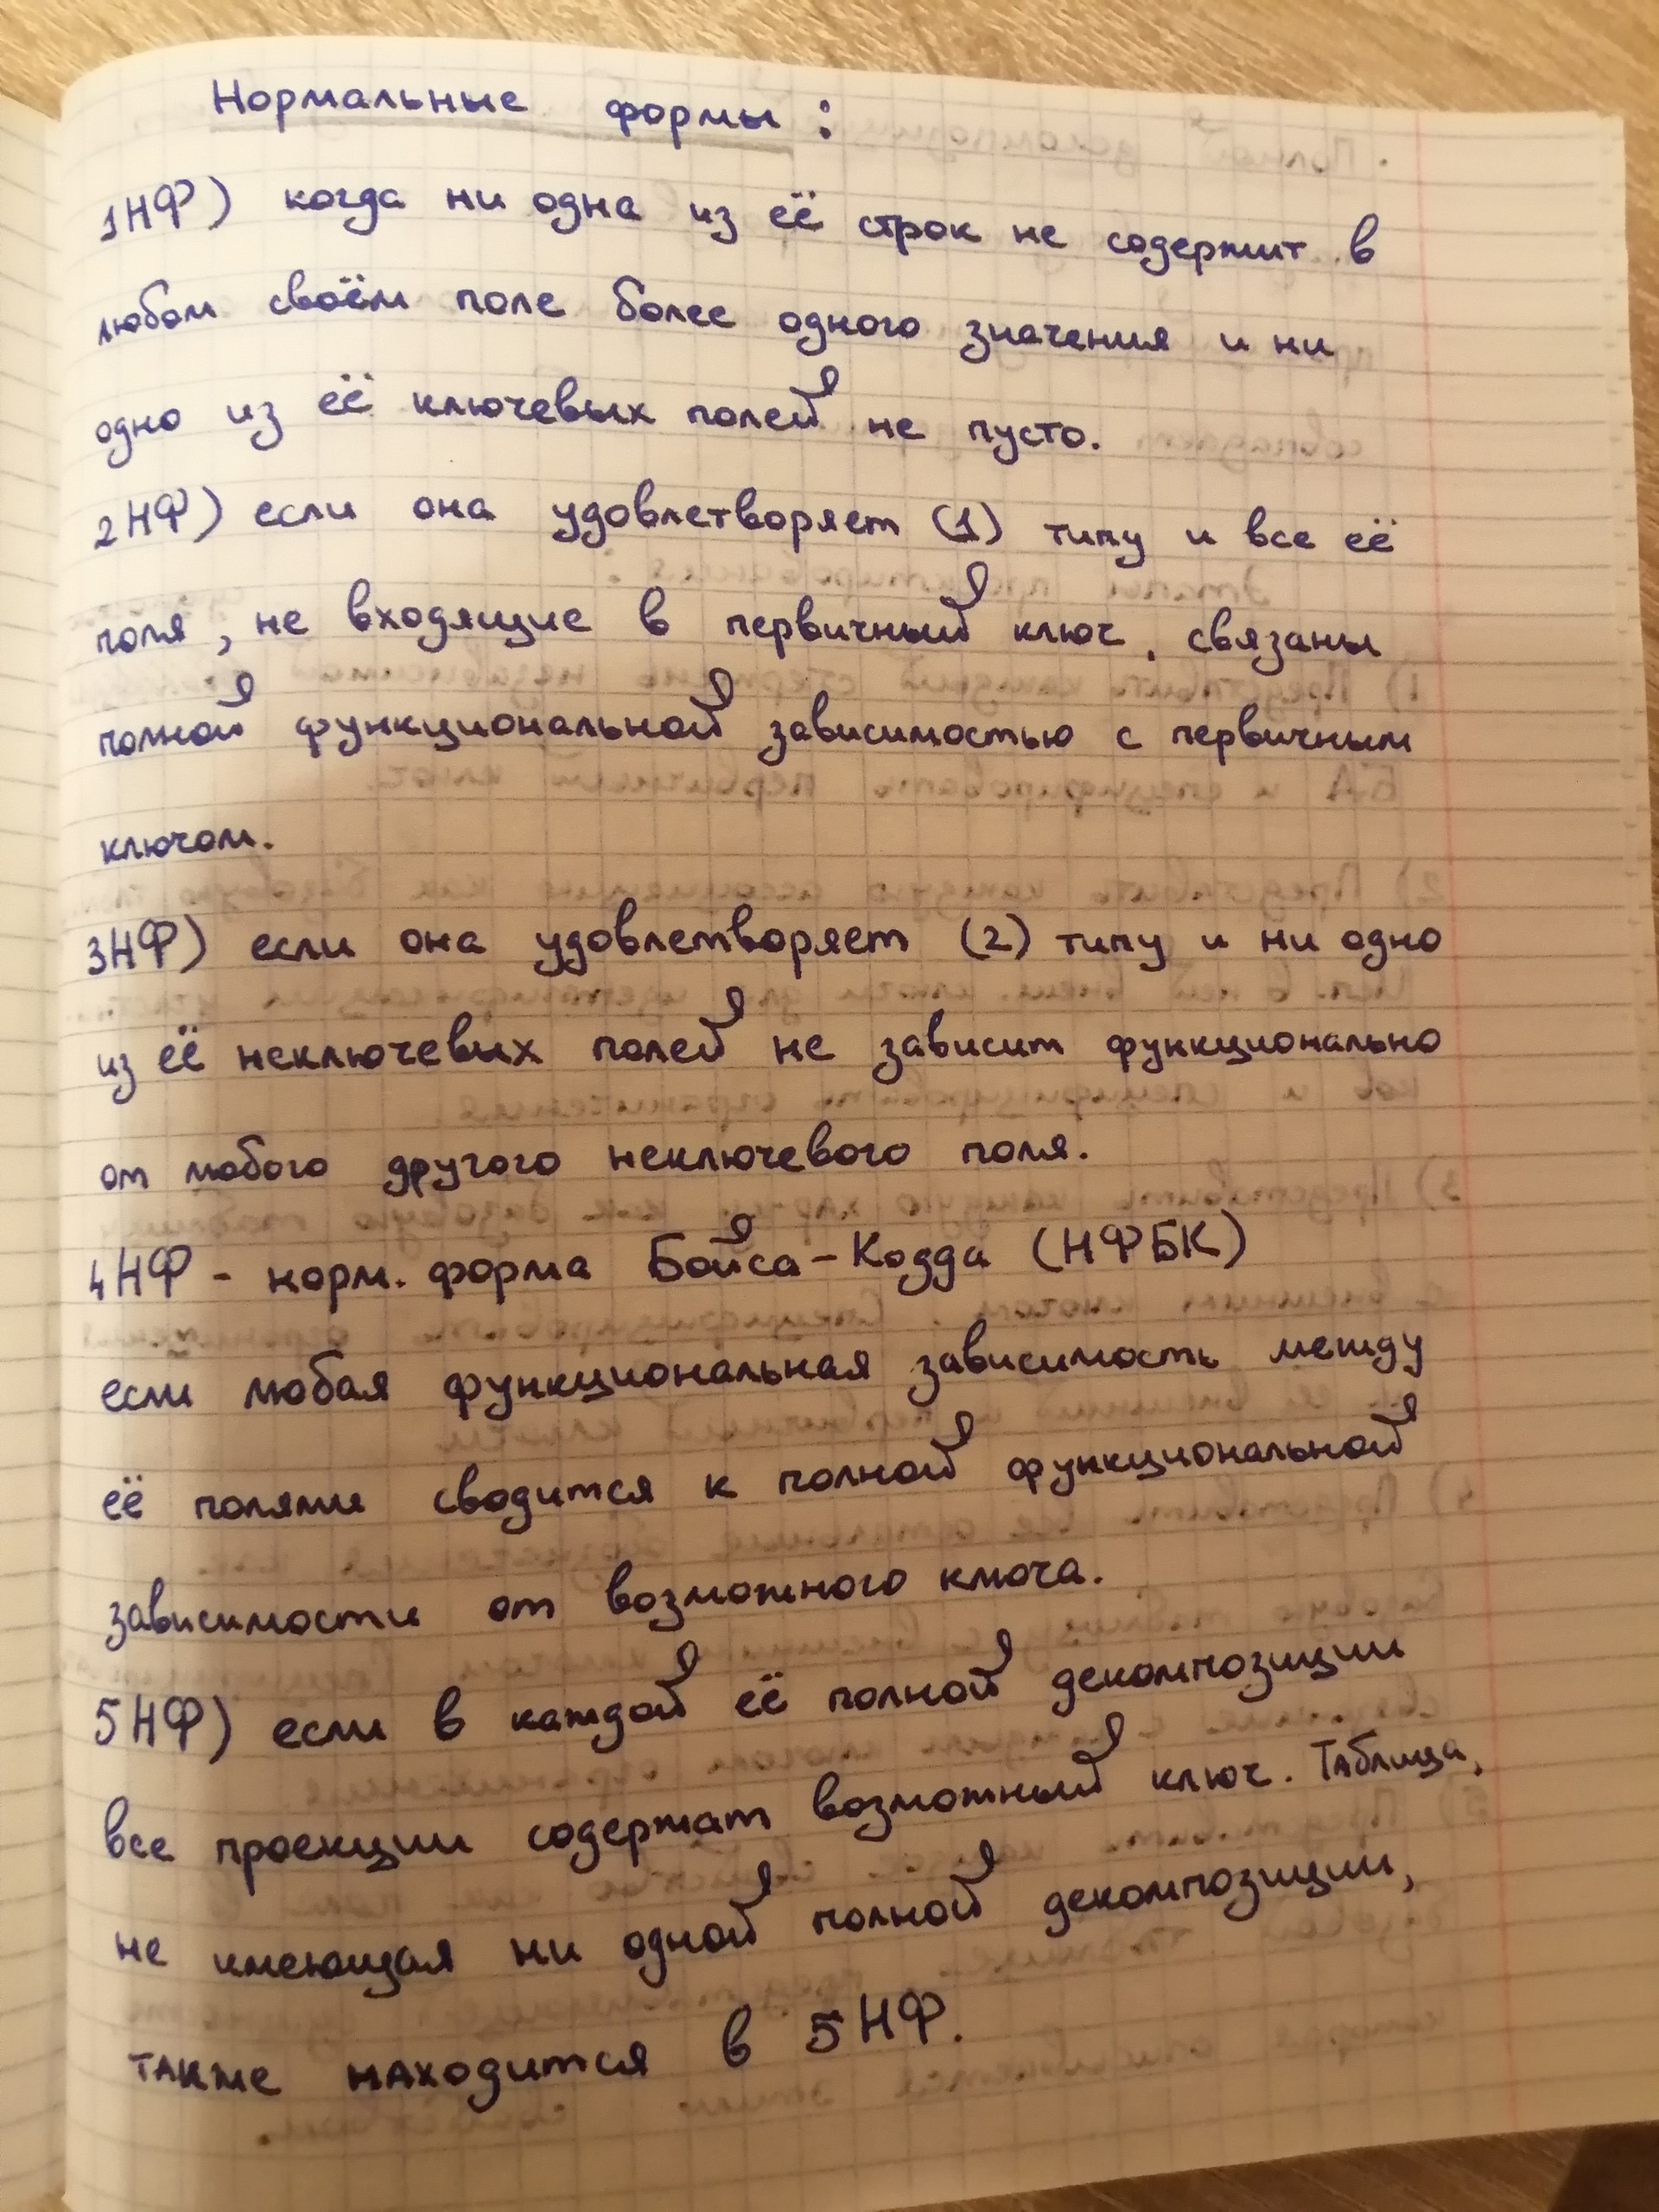 Нормальные формы:
1НФ) когда ни одна из её строк не содержит в
любом своём поле более одного значения и ни
одно из её ключевых полей не пусто.
2НФ) если она удовлетворяет (1) типу и все её
поля, не входящие в первичный ключ, связаны
полной функциональной зависимостью с первичным
ключом.
3НФ) если она удовлетворяет (2) типу и ни одно
из её неключевых полей не зависит функционально
от любого другого неключевого поля.
4НФ - норм. форма Бойса-Кодда (НФБК)
если любая функциональная зависимость между
её полями сводится к полной функциональной
зависимости от возможного ключа.
5НФ) если в каждой её полной декомпозиции
все проекции содержат возможный ключ. Таблица,
не имеющая ни одной полной декомпозиции,
также находится в 5НФ.